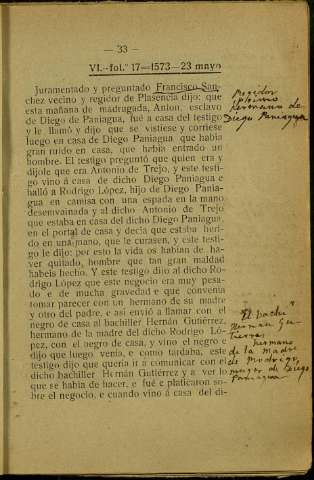 — 33 —
VI.--fol.º 17=1573—23 mayo
Juramentado y preguntado Francisco San-
chez vecino y regidor de Plasencia dijo: que
esta mañana de madrugada, Anton, esclavo
de Diego de Paniagua, fué a casa del testigo
y le llamó y dijo que se vistiese y corriese
luego en casa de Diego Paniagua que había
gran ruido en casa, que había entrado un
hombre. El testigo preguntó que quien era y
dijole que era Antonio de Trejo, y este testi-
go vino á casa de dicho Diego Paniagua e
halló a Rodrigo López, hijo de Diego Pania-
gua en camisa con una espada en la mano
desenvainada y al dicho Antonio de Trejo
que estaba en casa del dicho Diego Paniagua,
en el portal de casa y decia que estaba heri-
do en una mano, que le curasen, y este testi-
go le dijo: por esto la vida os habían de ha-
ver quitado, hombre que tan gran maldad
habeis hecho. Y este testigo dijo al dicho Ro-
drigo López que este negocio era muy pesa-
do e de mucha gravedad e que convenia
tomar parecer con un hermano de su madre
y otro del padre, e asi envió a llamar con el
negro de casa al bachiller Hernán Gutiérrez,
hermano de la madre del dicho Rodrigo Ló-
pez, con el negro de casa, y vino el negro e
dijo que luego venía, e como tardaba, este
testigo dijo que quería ir á comunicar con el
dicho bachiller Hernán Gutiérrez y a ver lo
que se había de hacer, e fué e platicaron so-
bre el negocio, e cuando vino á casa del di-
Regidor
de
Diego Paniagua
El bachir
Hernan Gu-
tierrez
hermano
de la madre
de Rodrigo,
muger de Diego
Paniagua